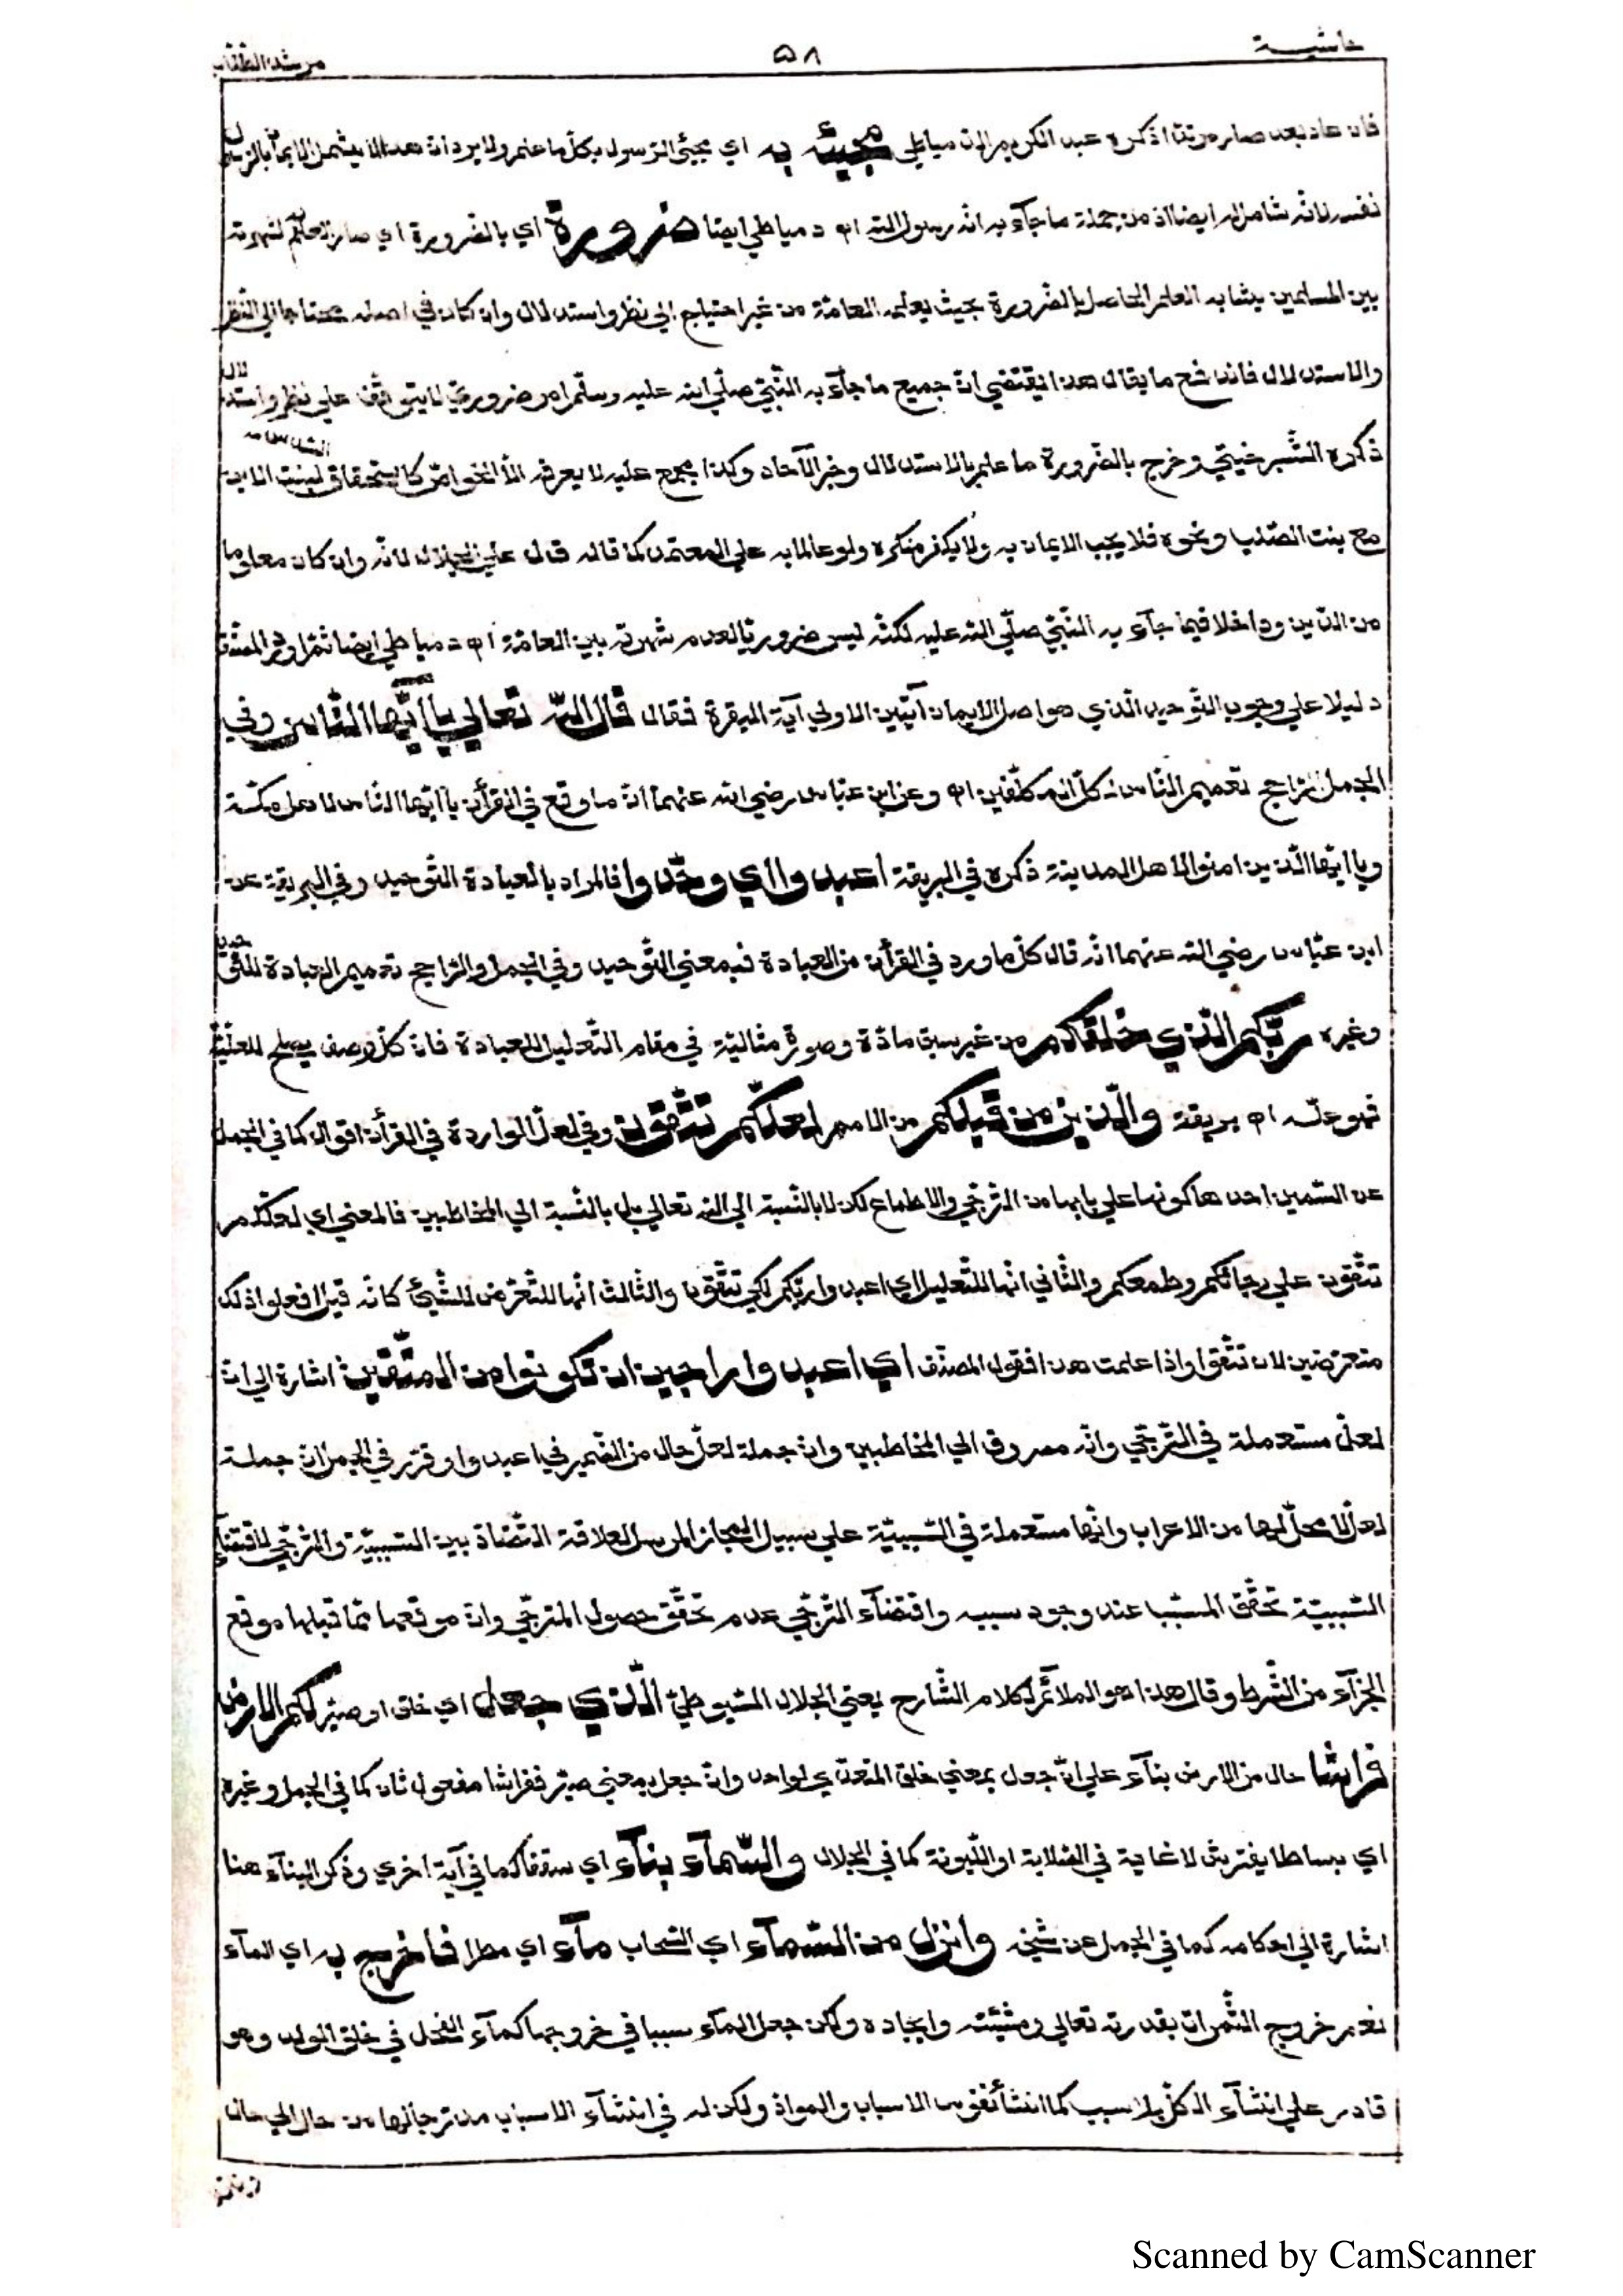 حاشية ٥٨ مرشد الطّلّاب
فان عاد بعد صار مرتدا ذكره عبد الكريم الدمياطي مجيئه به اي مجيئ الرّسول بكلّ ما علم ولا يرد انّ هذا لا يشمل الايمان بالرّسول
نفسه لانّه شامل له ايضا اذ من جملة ما جآء به انّه رسول الله اه دمياطي ايضا ضرورة اي بالضّرورة اي صار العلم به لشهرته
بين المسلمين يشابه العلم الحاصل بالضّرورة بحيث يعلمه العامّة من غير احتياج الي نظر واستدلال وان كان في اصله محتاجا الي النّظر
والاستدلال فاندفع ما يقال هذا يقتضي انّ جميع ما جآء به النّبيّ صلّي الله عليه وسلّم امر ضروريّ لا يتوقّف علي نظر واستدلال
ذكره الشّبرخيتي وخرج بالضّرورة ما علم بالاستدلال وخبر الآحاد وكذا مجمع عليه لا يعرفه الاّ الخواصّ كاستحقاق بنت الابن السّدس
مع بنت الصّلب ونحوه فلا يجب الايمان به ولا يكفر منكره ولو عالما به علي المعتمد كما قاله قال علي الجلال لانّه وان كان معلوما
من الدّين وداخلا فيما جآء به النّبيّ صلّي الله عليه لكنّه ليس ضروريّا لعدم شهرته بين العامّة اه دمياطي ايضا ثمّ اورد المصنّف
دليلا علي وجوب التّوحيد الّذي هو اصل الايمان آيتين الاولي آية البقرة فقال قال اللّه تعالي يا ايّها النّاس وفي
الجمل الرّاجح تعميم النّاس لكلّ المكلّفين اه وعن ابن عبّاس رضي الله عنهما انّ ما وقع في القرأن يا ايّها النّاس لاهل مكّة
ويا ايّها الّذين امنوا لاهل المدينة ذكره في البريقة اعبدوا اي وحّدوا فالمراد بالعبادة التّوحيد وفي البريقة عن
ابن عبّاس رضي الله عنهما انّه قال كلّ ما ورد في القرأن من العبادة فبمعني التّوحيد وفي الجمل والرّاجح تعميم العبادة للتّوحيد
وغيره ربّكم الّذي خلقكم من غير سبق مادّة وصورة مثاليّة في مقام التّعليل للعبادة فانّ كلّ وصف يصلح للعلّيّة
فهو علّة اه بريقة والّذين من قبلكم من الامم لعلّكم تتّقون وفي لعلّ الواردة في القرأن اقوال كما في الجمل
عن السّمين احدها كونها علي بابها من التّرجّي والاطماع لكن لا بالنّسبة الي الله تعالي بل بالنّسبة الي المخاطبين فالمعني اي لعلّكم
تتّقون علي رجائكم وطمعكم والثّاني انّها للتّعليل اي اعبدوا ربّكم لكي تتّقوا والثّالث انّها للتّعرّض للشّيئ كانّه قيل افعلوا ذلك
متعرّضين لان تتّقوا واذا علمت هذا فقول المصنّف اي اعبدوا راجين ان تكونوا من المتّقين اشارة الي انّ
لعلّ مستعملة في التّرجّي وانّه مصروف الي المخاطبين وانّ جملة لعلّ حال من الضّمير في اعبدوا وقرّر في الجمل انّ جملة
لعلّ لا محلّ لها من الاعراب وانّها مستعملة في السّببيّة علي سبيل المجاز المرسل لعلاقة التّضادّ بين السّببيّة والتّرجّي لاقتضآء
السّببيّة تحقّق المسبّب عند وجود سببه واقتضآء التّرجّي عدم تحقّق حصول المترجّي وانّ موقعها ممّا قبلها موقع
الجزآء من الشّرط وقال هذا هو الملائم لكلام الشّارح يعني الجلال السّيوطيّ الّذي جعل اي خلق او صيّر لكم الارض
فراشا حال من الارض بنآء علي انّ جعل بمعني خلق المتعدّي لواحد وان جعل بمعني صيّر ففراشا مفعول ثان كما في الجمل وغيره
اي بساطا يفترش لا غاية في الصّلابة او اللّيونة كما في الجلال والسّمآء بنآء اي سقفا كما في آية اخري وذكر البنآء هنا
اشارة الي احكامه كما في الجمل عن شيخه وانزل من السّمآء اي السّحاب مآء اي مطرا فاخرج به اي المآء
نعم خروج الثّمرات بقدرته تعالي ومشيّته وايجاده ولكن جعل المآء سببا في خروجها كمآء الفحل في خلق الولد وهو
قادر علي انشآء الكلّ بلا سبب كما انشأ نفوس الاسباب والموادّ ولكن له في انشآء الاسباب مدرّجا لها من حال الي حال